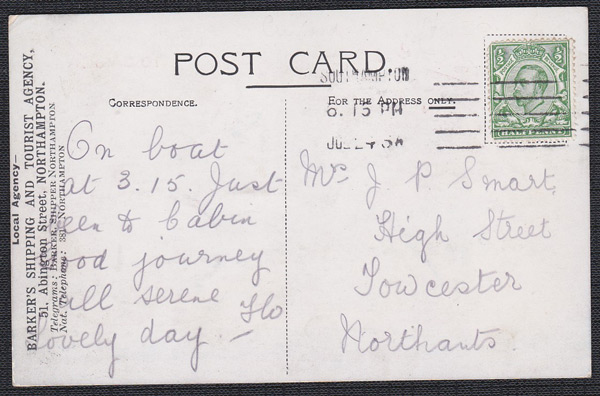 POST CARD.
CORRESPONDENCE.
FOR THE ADDRESS ONLY.
SOUTHAMPTON
8.15 PM
JUL 24
½ ½
HALFPENNY
Local Agency—
BARKER'S SHIPPING AND TOURIST AGENCY,
51, Abington Street, NORTHAMPTON.
Telegrams: BARKER, SHIPPER NORTHAMPTON
Nat. Telephone: NORTHAMPTON
On boat
at 3.15. Just
een to Cabin
ood journey
all serene Flo
ovely day –
J P Smart,
High Street
Towcester
Northants.